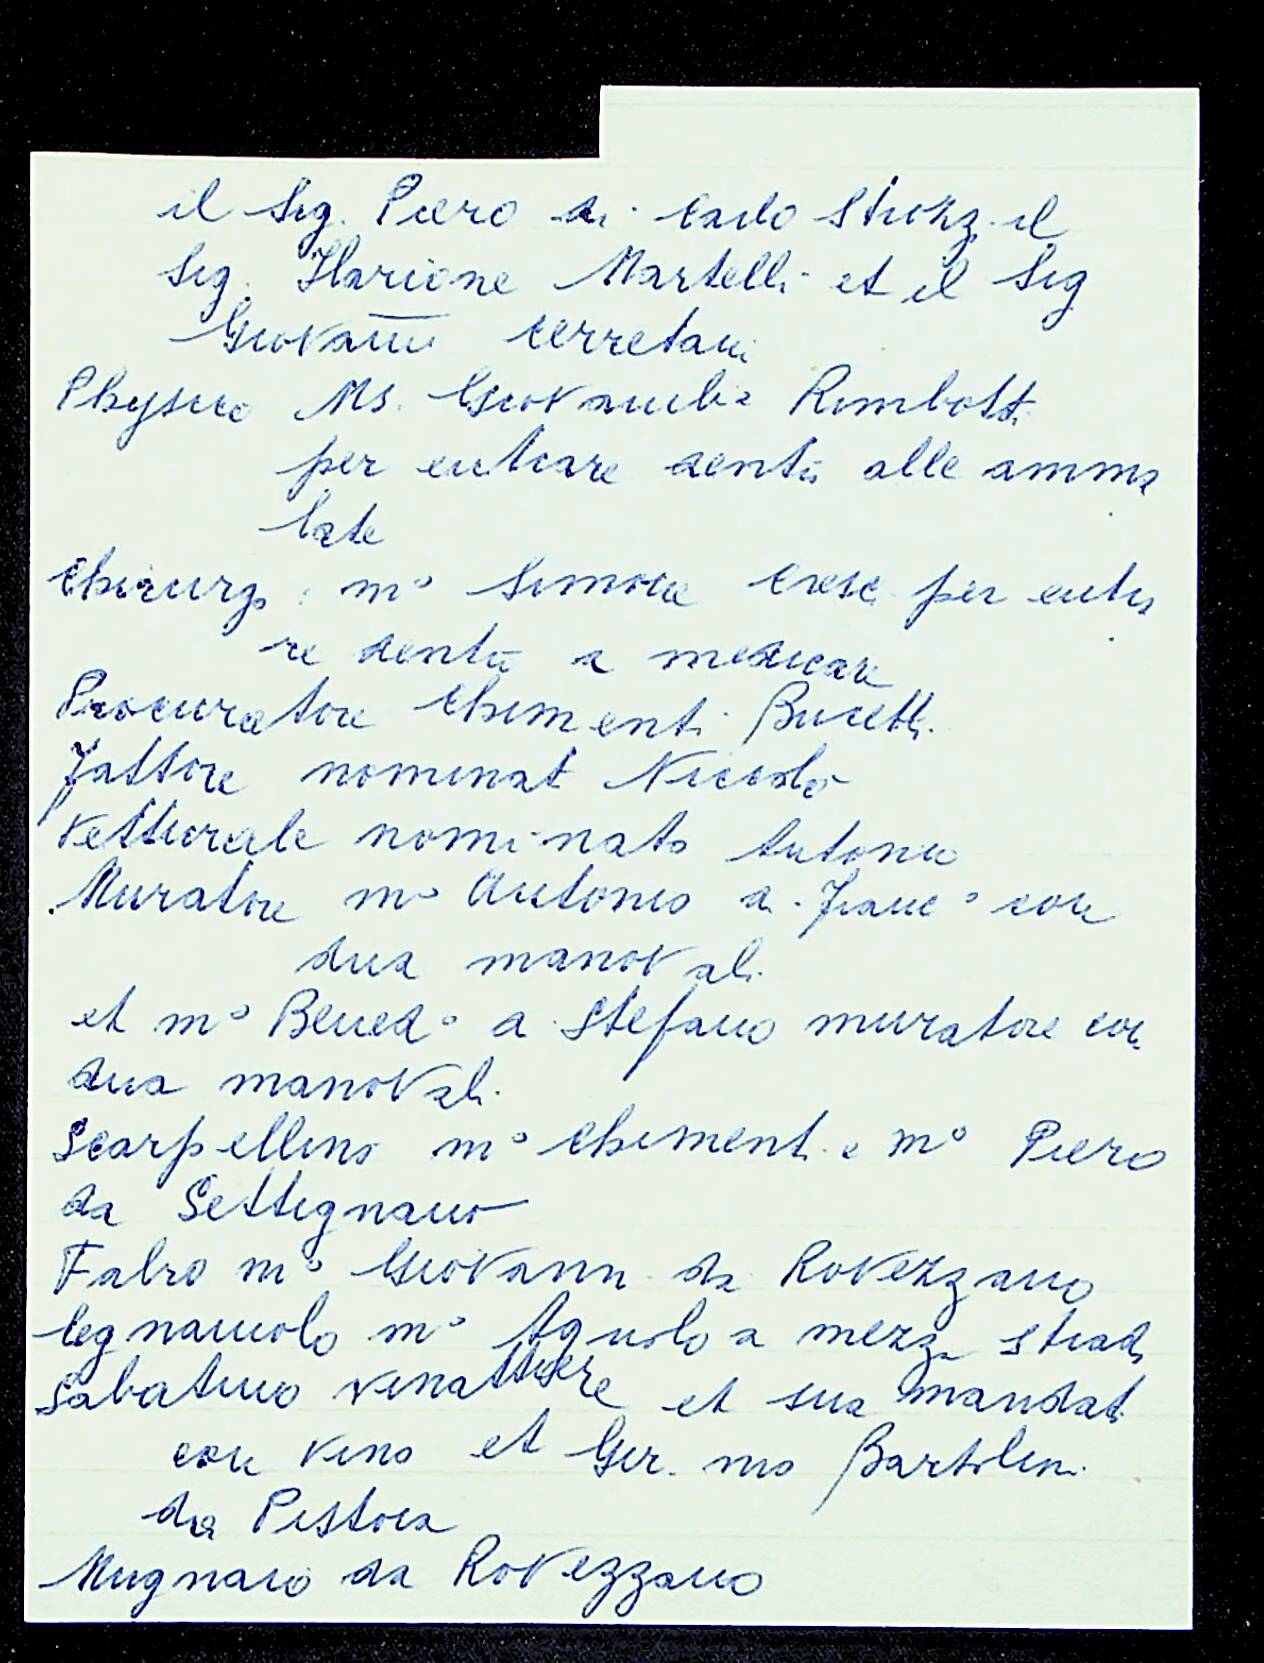 il Sig. Piero di Carlo Strozzi il
Sig. Ilarione Martelli et il Sig
Giovanni Cerretani
Physico Ms. Giovamba Rimbotti
per entrare dentro alle amma
late
Chirurgo m° Simone per entra
re dentro a medicare
Procuratore Chimenti Bucetti
Fattore nominato Niccolo
Vetturale nominato Antonio
Muratore m° Antonio di Franc° con
dua manovali
et m° Bened° di Stefano muratore con
dua manovali
Scarpellino m° Chimenti e m° Piero
da Settignano
Fabro m° Giovanni da Rovezzano
legnaiuolo m° Agnolo a mezza strada
Sabatino vinattiere et sua mandati
con vino et Gir.mo Bartolini
da Pistoia
Mugnaio da Rovezzano